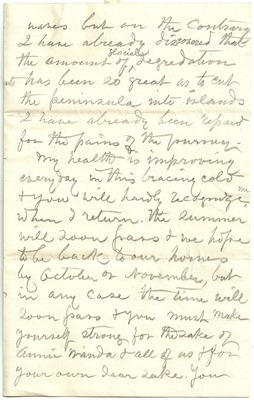 waves but on the contrary
I have already discovered that
glacial
the amount of degredation
has been so great as to cut
the peninsula into islands
I have already been repaid
for the pains of the journey.
My health is improving
everyday in this bracing cold
me
& you will hardly recognize
when I return. The summer
will soon pass & we hope
to be back to our homes
by October or November, but
in any case the time will
soon pass & you must make
yourself strong for the sake of
Annie Wanda & all of us & for
your own dear sake. You